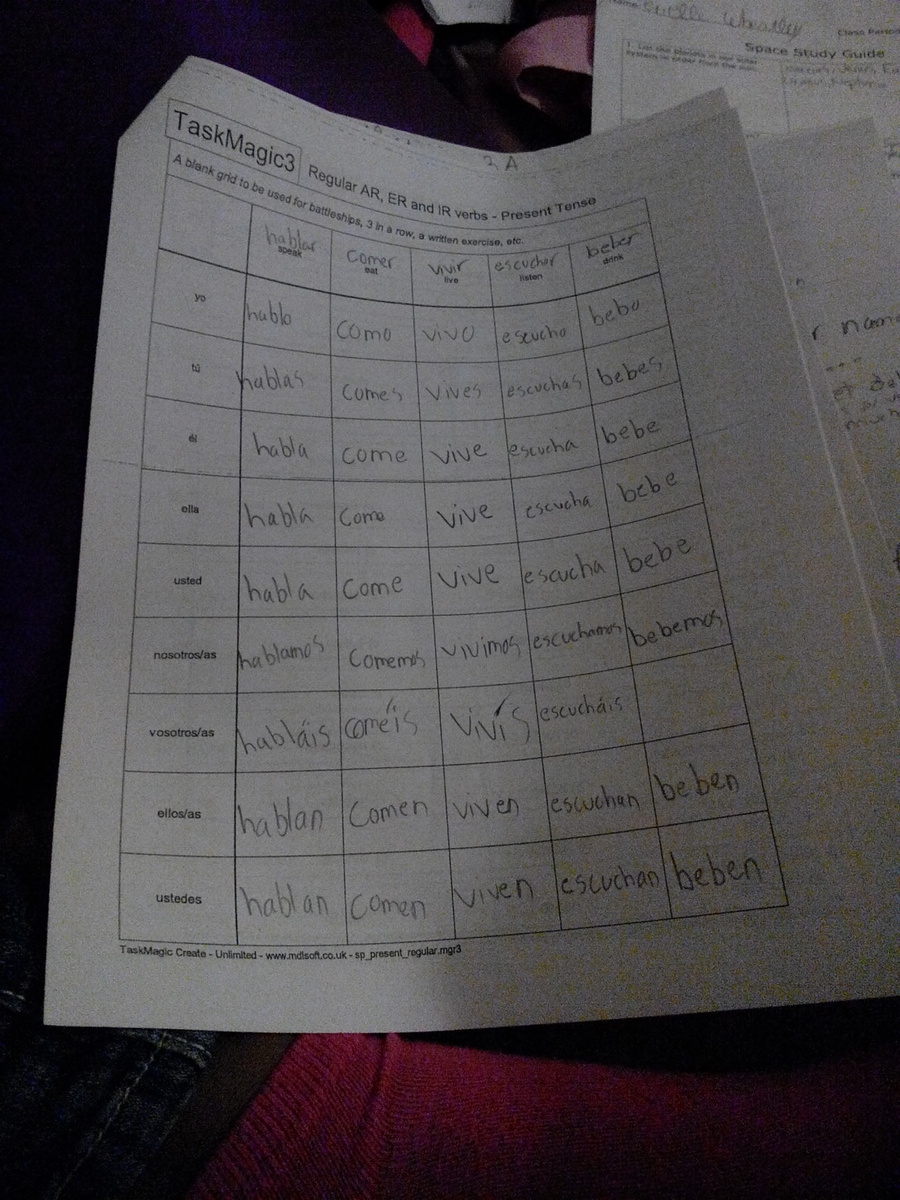 Space Study Guide
2 A
TaskMagic3 Regular AR, ER and IR verbs - Present Tense
A blank grid to be used for battleships, 3 in a row, a written exercise, etc.
hablar comer vivir escuchar beber
speak eat live listen drink
yo hablo como vivo escucho bebo
tú hablas comes vives escuchas bebes
él habla come vive escucha bebe
ella habla come vive escucha bebe
usted habla come vive escucha bebe
nosotros/as hablamos comemos vivimos escuchamos bebemos
vosotros/as habláis coméis vivís escucháis
ellos/as hablan comen viven escuchan beben
ustedes hablan comen viven escuchan beben
TaskMagic Create - Unlimited - www.mdlsoft.co.uk - sp_present_regular.mgr3